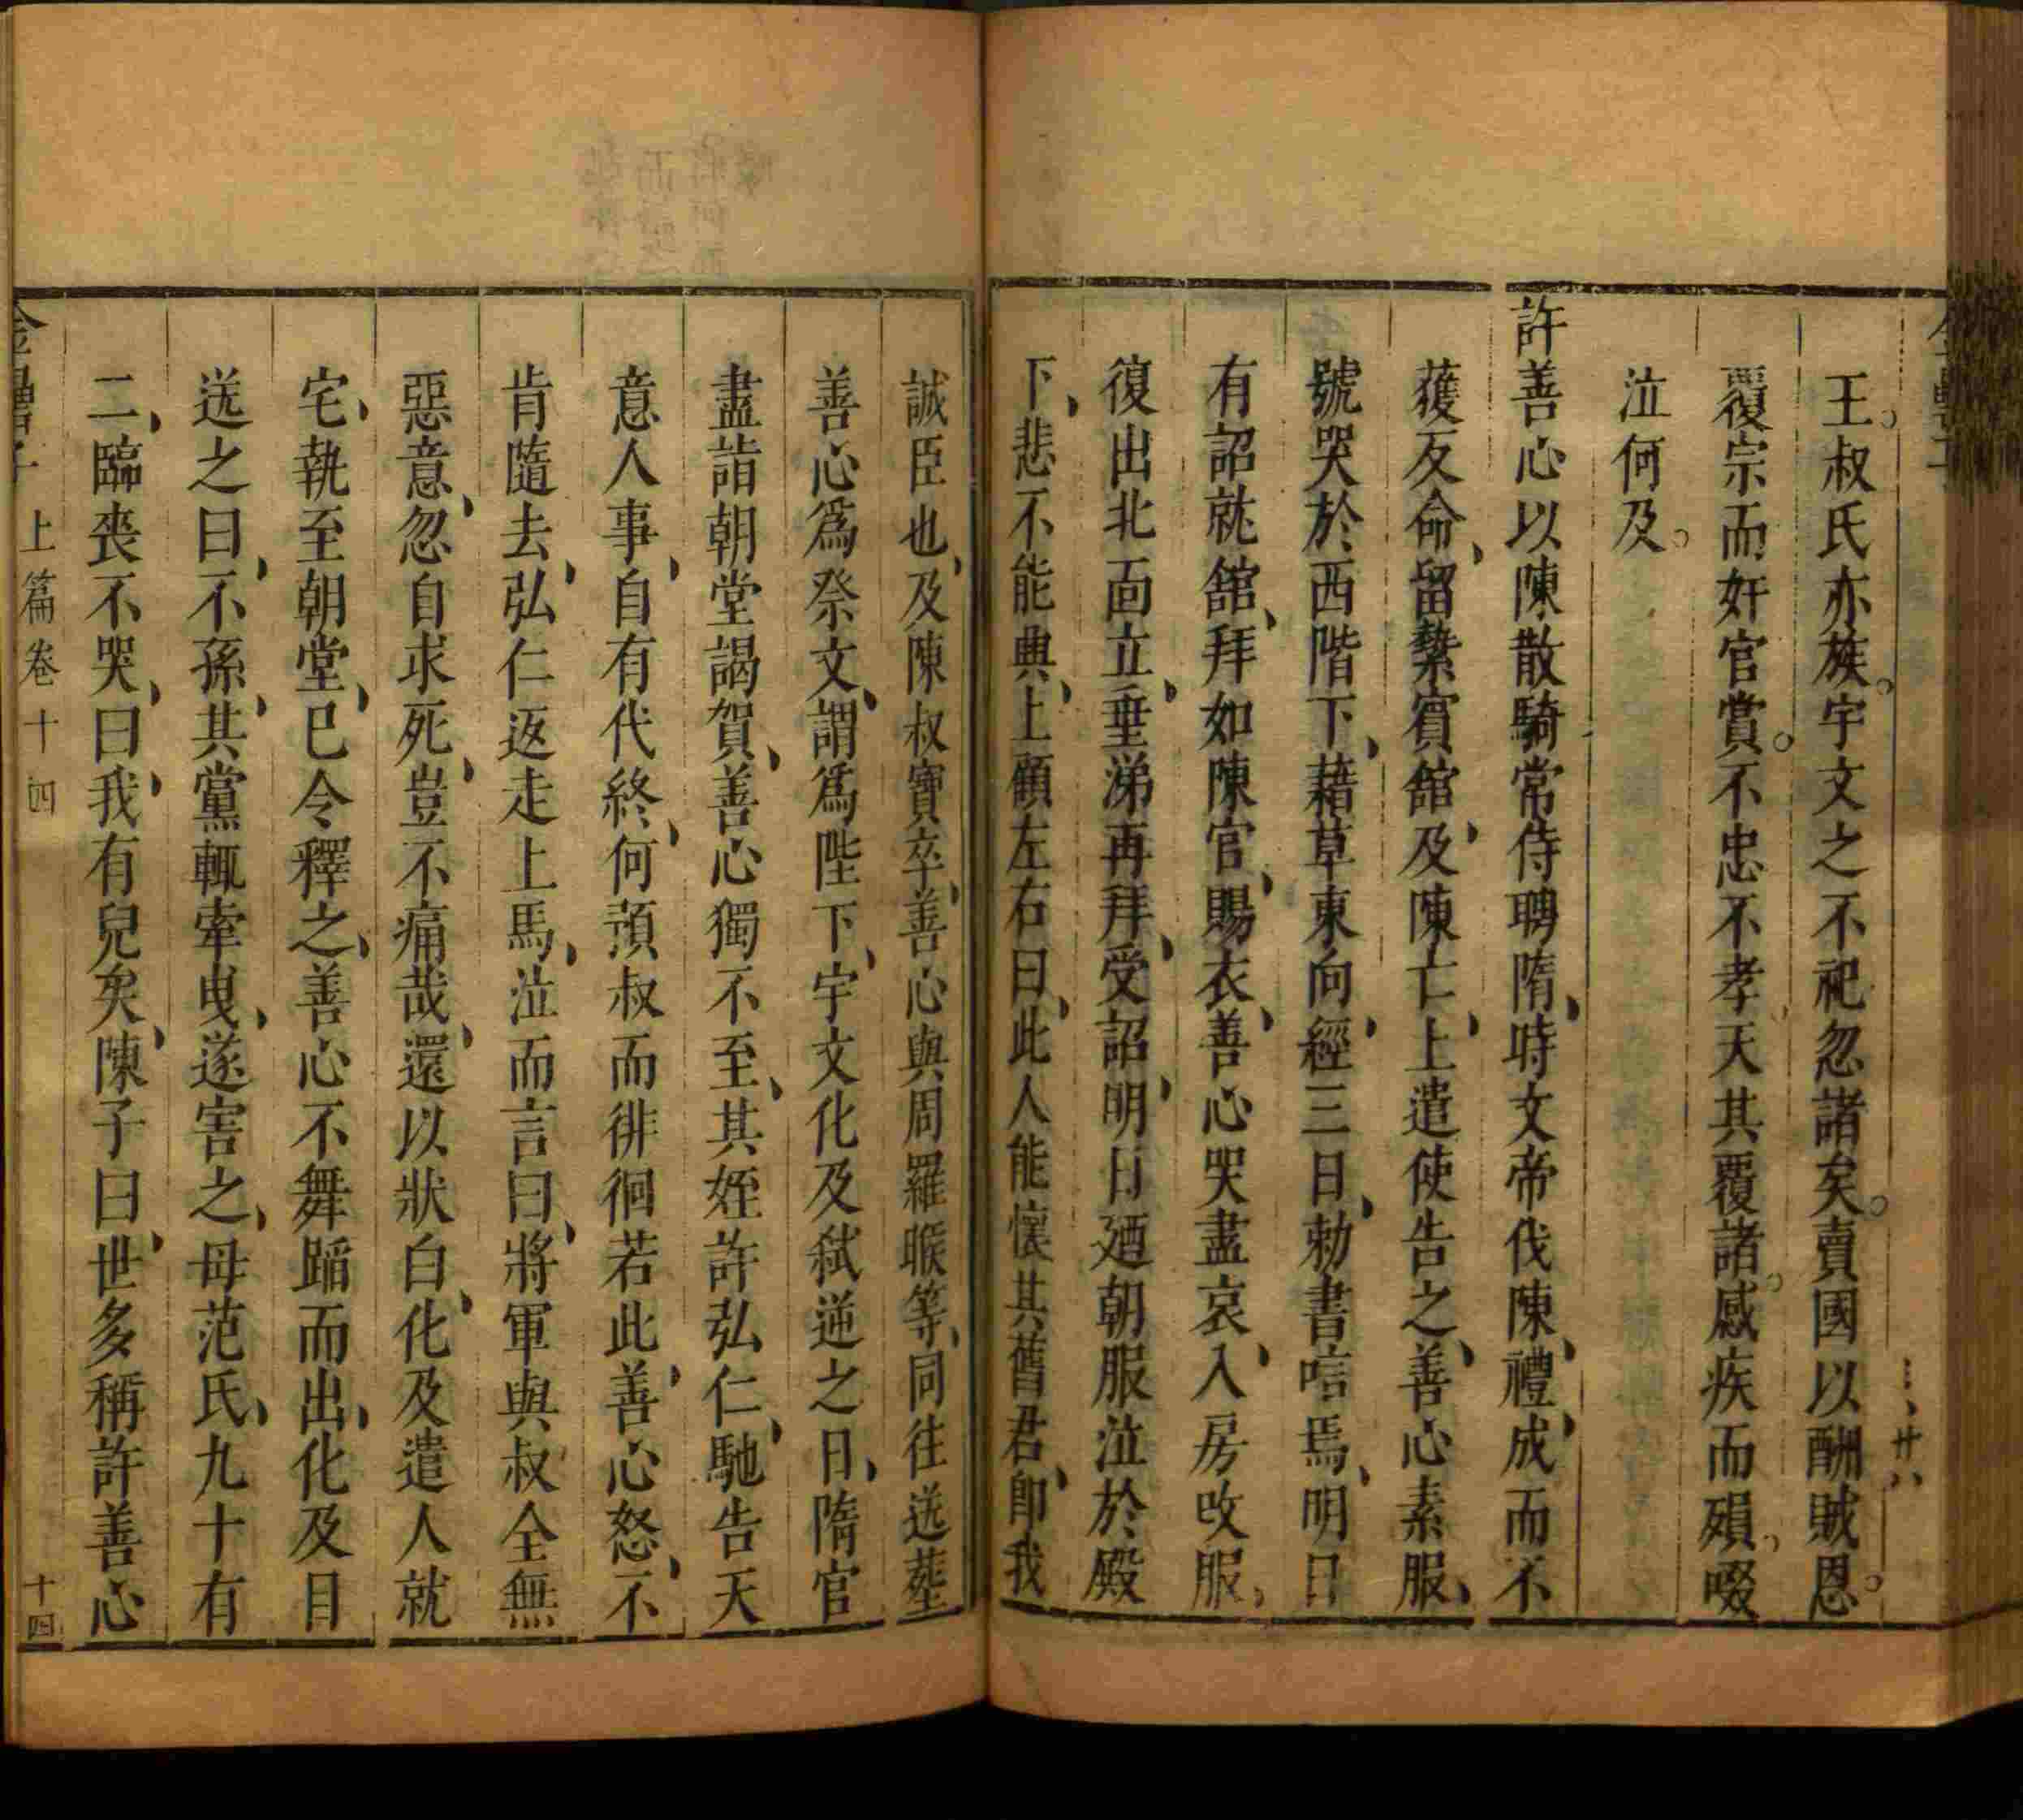 王叔氏亦族宇文之不祀忽諸矣賣國以酬賊恩
覆宗而奸官賞不忠不孝天其覆諸感疾而殞啜
泣何及
許善心以陳散騎常侍聘隋時文帝伐陳禮成而不
獲反命留縶賓舘及陳亡上遣使告之善心素服
號哭於西階下藉草東向經三日勅書唁焉明日
有詔就舘拜如陳官賜衣善心哭盡哀入房改服
復出北面立垂涕再拜受詔明日廼朝服泣於殿
下悲不能興上顧左右曰此人能懷其舊君卽我
誠臣也及陳叔寶卒善心與周羅睺等同往送塟
善心爲祭文謂爲陛下宇文化及弑逆之日隋官
盡詣朝堂謁賀善心獨不至其姪許弘仁馳告天
意人事自有代終何預叔而徘徊若此善心怒不
肯隨去弘仁返走上馬泣而言曰將軍與叔全無
惡意忽自求死豈不痛哉還以狀白化及遣人就
宅執至朝堂已令釋之善心不舞蹈而出化及目
送之曰不孫其黨輒牽曳遂害之母范氏九十有
二臨喪不哭曰我有兒矣陳子曰世多稱許善心
金罍子 上篇卷十四 十四